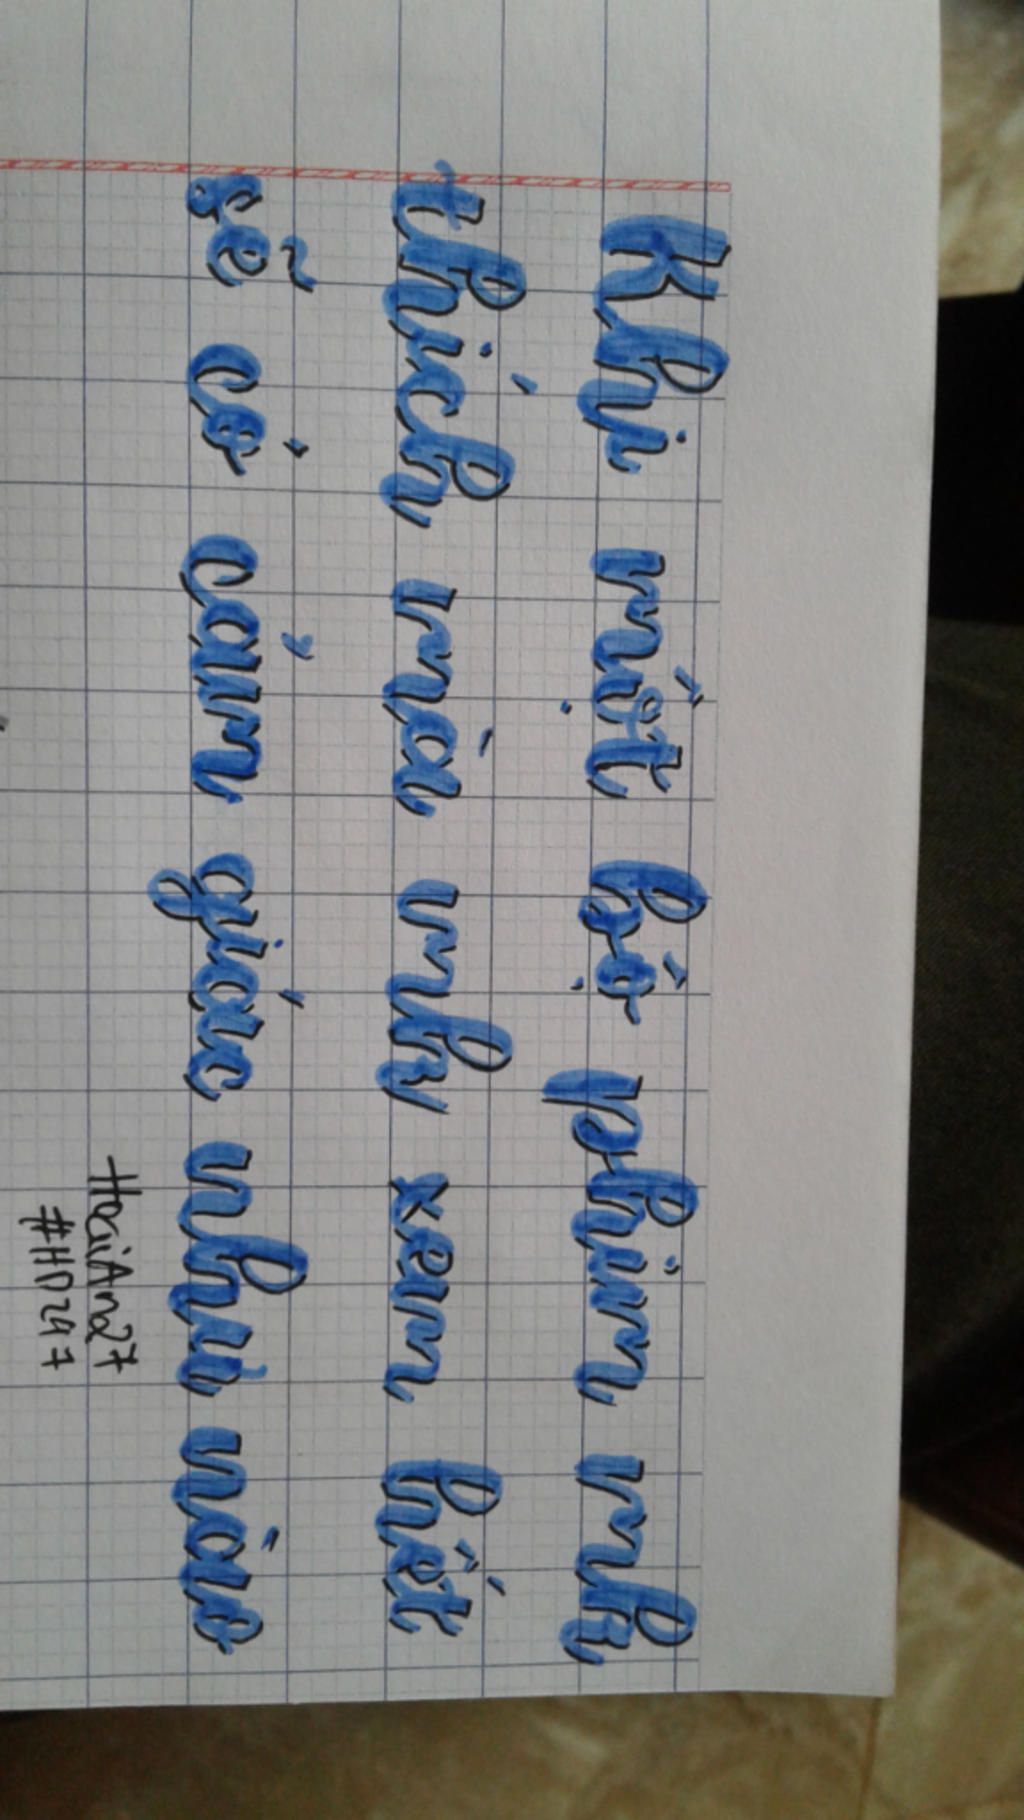 Khi một bộ phim mk
thích mà mk xem hết
sẽ có cảm giác như nào
HoaiAn27
#HD247